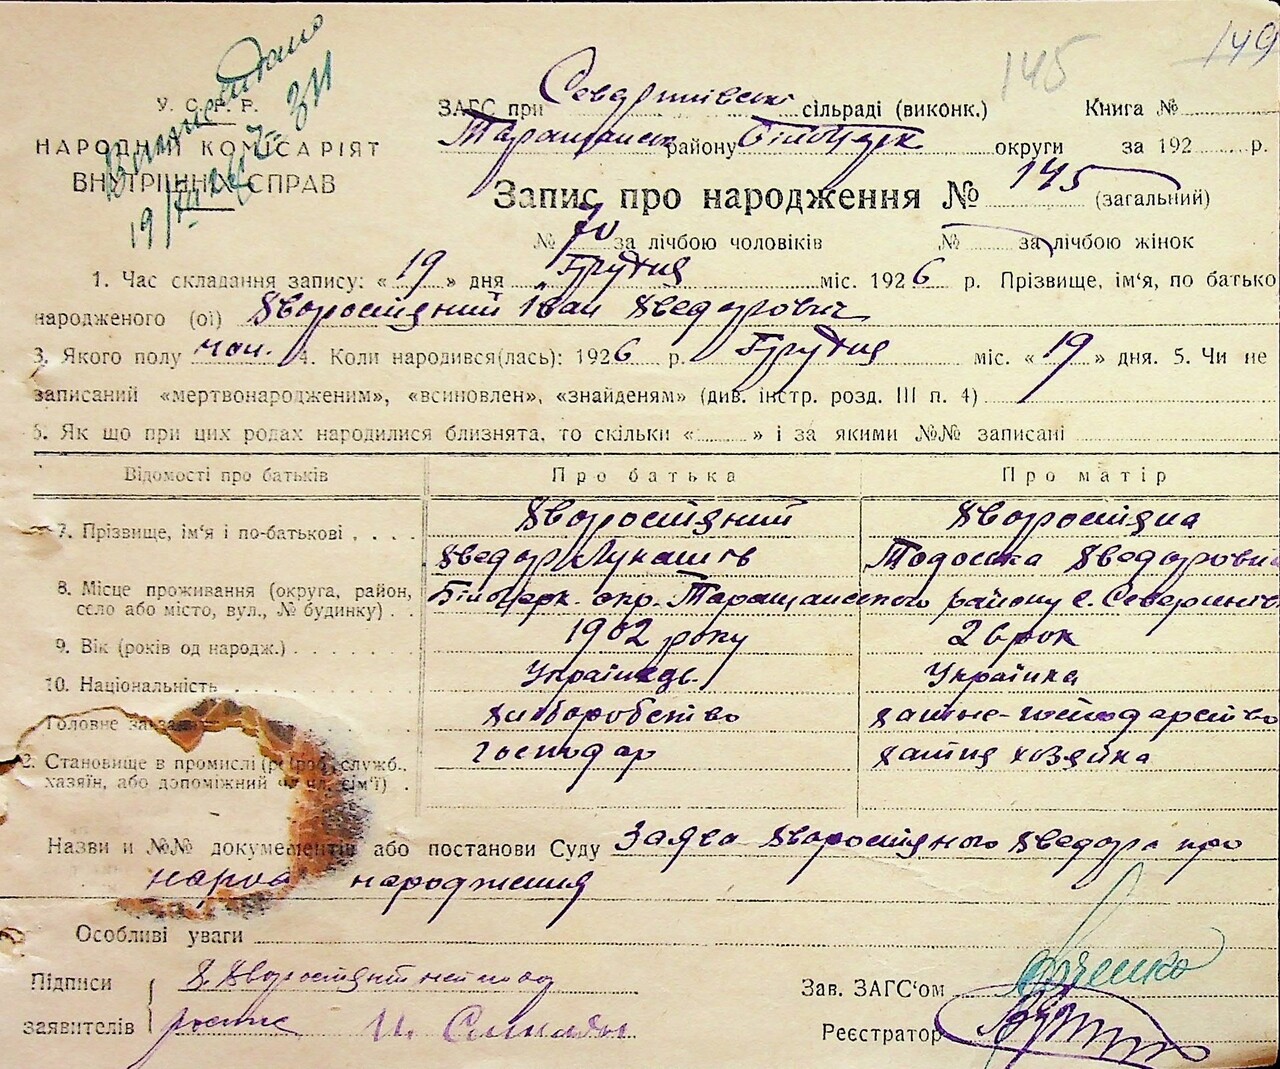 145
149
У. С. Р. Р.
НАРОДНІЙ КОМІСАРІЯТ
ВНУТРІШНІХ СПРАВ
ЗАГС при Северинівські сільраді (виконк.) Книга №
Таращанськ району Білоцерк округи за 192 р.
Запис про народження № 145 (загальний)
№ 70 за лічбою чоловіків № за лічбою жінок
1. Час складання запису: « 19 » дня Грудня міс. 1926 р. Прізвище, ім'я, по батько
народженого (ої) Хворостяний Іван Хведорович
3. Якого полу чол. 4. Коли народився(лась): 1926 р. Грудня міс. « 19 » дня. 5. Чи не
записаний «мертвонародженим», «всиновлен», «знайденям» (див. інстр. розд. III п. 4)
6. Як що при цих родах народилися близнята, то скільки « » і за якими №№ записані
Відомості про батьків Про батька Про матір
7. Прізвище, ім'я і по-батькові Хворостяний Хворостяна
Хведор Лукашів Тодоська Хведоровна
8. Місце проживання (округа, район, село або місто, вул., № будинку) Білоцерк. окр. Таращанського району с. Северинів
9. Вік (років од народж.) 1902 року 24 рок
10. Національність Українець Українка
Головне Хліборобство хатне-господарство
2. Становище в промислі служб., Господар хатня хозяйка
хазяїн, або допоміжний сім'ї)
Назви и №№ документів або постанови Суду Заява Хворостяного Хведора про
народження
Особливі уваги
Підписи Х. Хворостяний
заявителів
Зав. ЗАГС'ом
Реєстратор